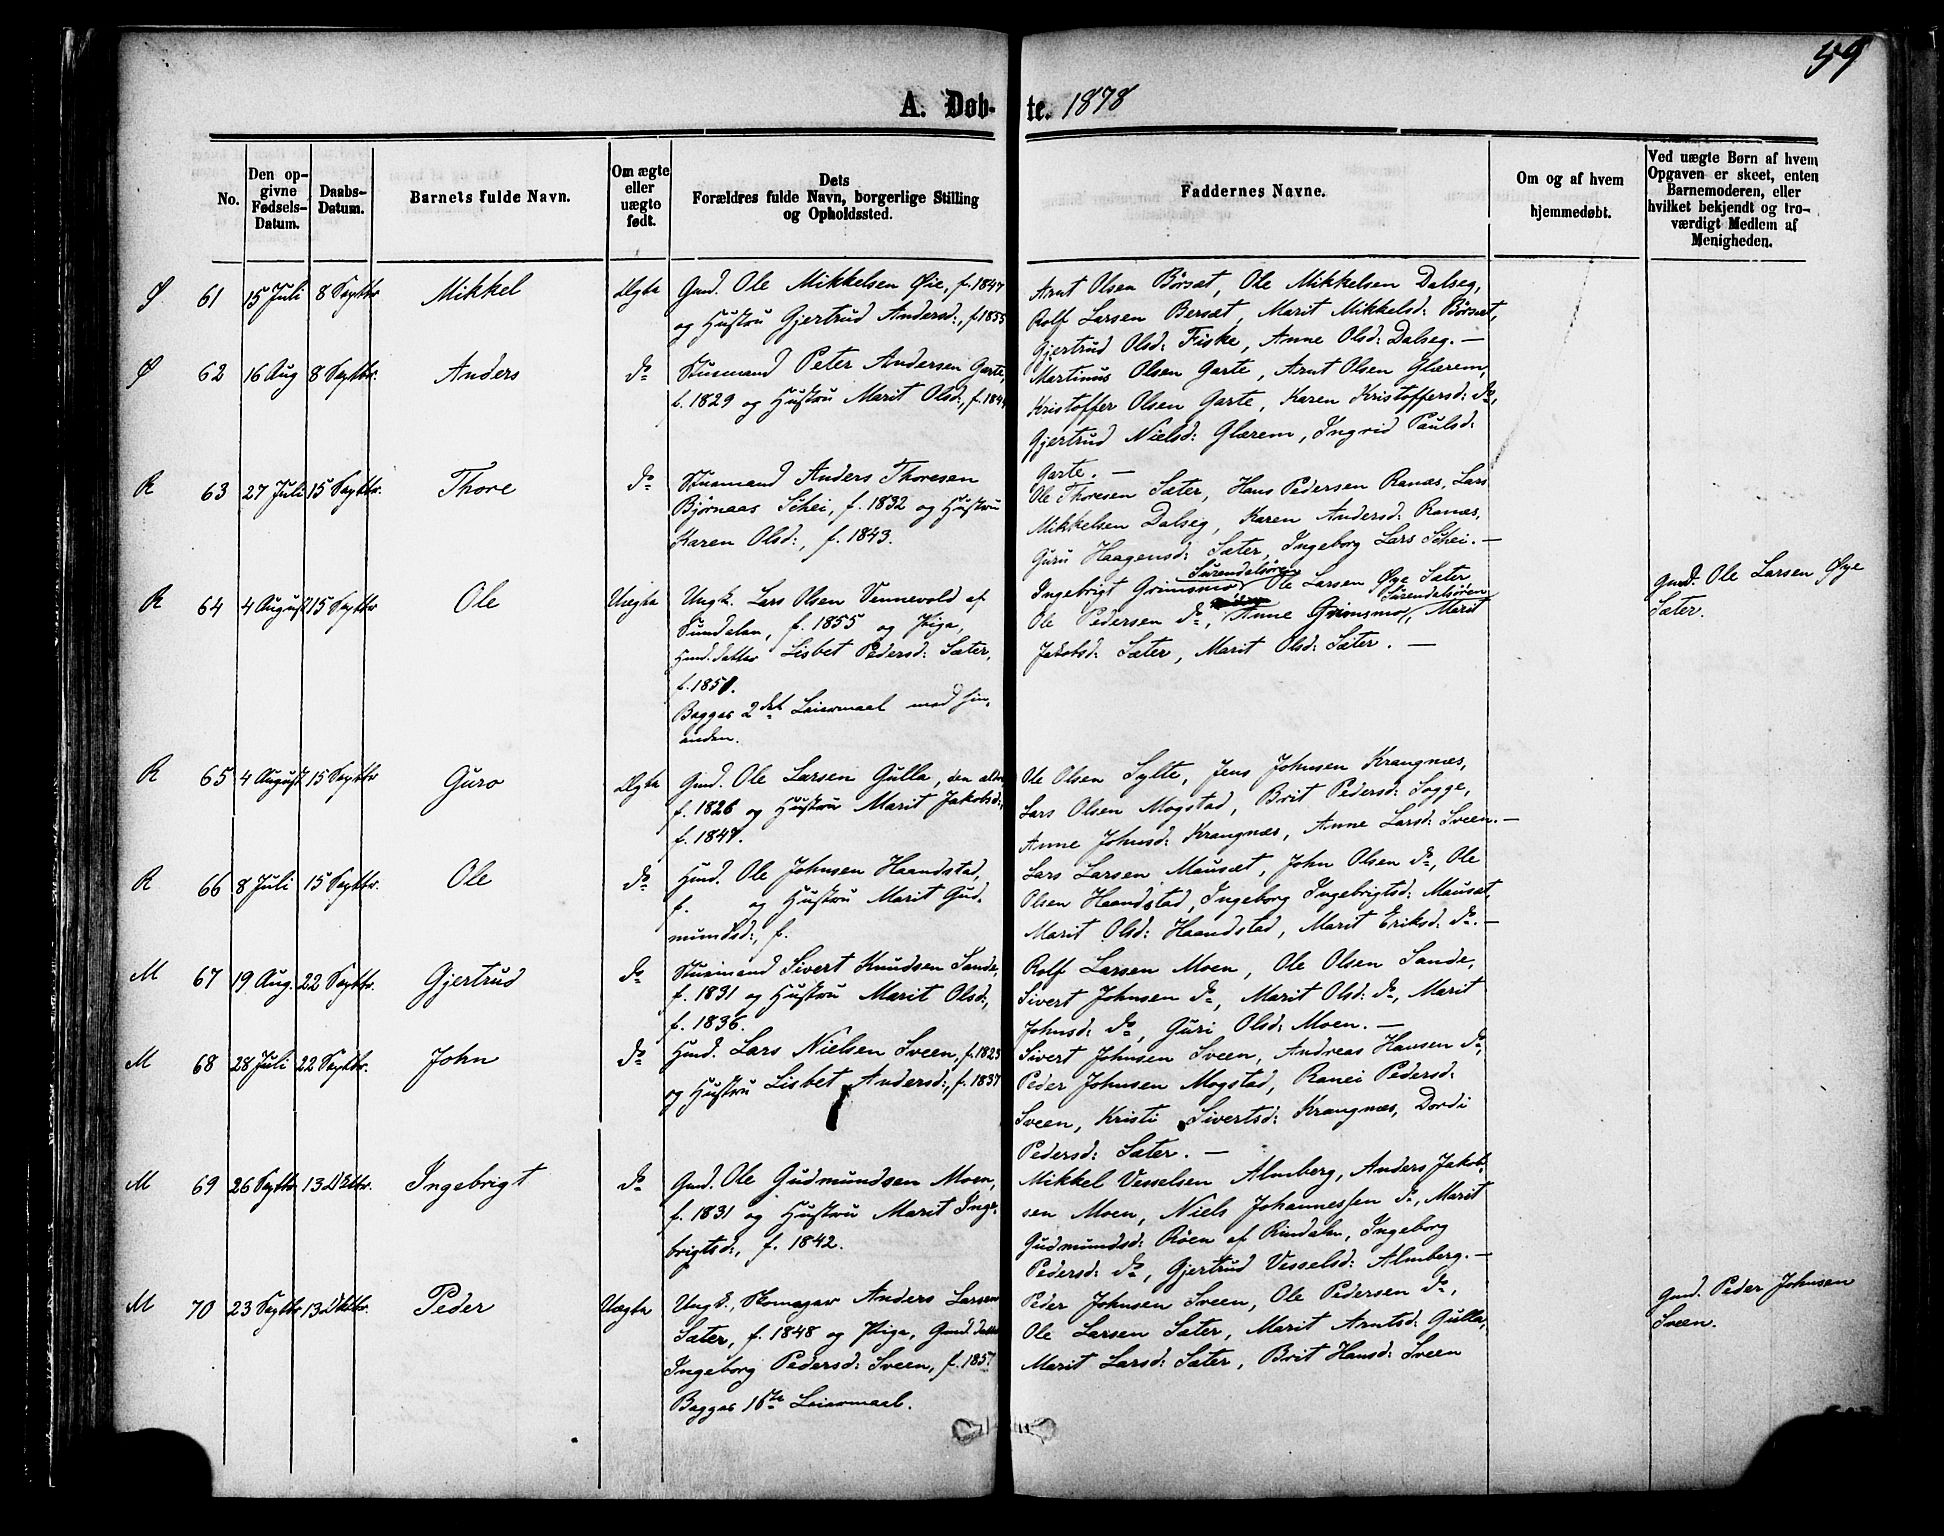 59
A. Døb-te. 1878
No.
Den op-
givne
Fødsels-
Datum.
Daabs-
Datum.
Barnets fulde Navn.
Om ægte
eller
uægte
født.
Dets
Forældres fulde Navn, borgerlige Stilling
og Opholdssted.
Faddernes Navne.
Om og af hvem
hjemmedøbt.
Ved uægte Børn af hvem
Opgaven er skeet, enten
Barnemoderen, eller
hvilket bekjendt og tro-
værdigt Medlem af
Menigheden.
Ø 61 15 Juli 8 Septbr Mikkel Ægte
Gmd. Ole Mikkelsen Øie, f. 1847
og Hustru Gjertrud Andersd:, f. 1855
Arnt Olsen Børsæt, Ole Mikkelsen Dalseg,
Rolf Larsen Bersæt, Marit Mikkelsd: Børsæt,
Gjertrud Olsd: Fiske, Anne Olsd: Dalseg. —
Ø 62 16 Aug 8 Septbr. Anders do
Husmand Peter Andersen Garte,
f. 1829 og Hustru Marit Olsd:, f. 1844
Martinus Olsen Garte, Arnt Olsen Glærem,
Kristoffer Olsen Garte, Karen Kristoffersd: do,
Gjertrud Nielsd: Glærem, Ingrid Paulsd:
Garte. —
R 63 27 Juli 15 Septbr. Thore do
Husmand Anders Thoresen
Bjørnaas Schei, f. 1832 og Hustru
Karen Olsd:, f. 1843.
Ole Thoresen Sæter, Hans Pedersen Ranæs, Lars
Mikkelsen Dalseg, Karen Andersd: Ranæs,
Guru Haagensd: Sæter, Ingeborg Lars Schei. —
R 64 4 August 15 Septbr Ole Uægte
Ungk. Lars Olsen Vennevold af
Sundalen, f. 1855 og Pige,
Gmd. datter Lisbet Pedersd: Sæter,
f. 1851.
Begges 2det Leiermaal med hin-
anden.
Surendalsøren
Ingebrigt Grimsmo, Ole Larsen Øye Sæter
Surendalsøren
Ole Pedersen do, Anne Grimsmo, Marit
Jakobsd: Sæter, Marit Olsd: Sæter. —
Gmd. Ole Larsen Øye
Sæter.
R 65 4 August 15 Septbr Guro Ægte
Gmd. Ole Larsen Gulla, den ældre
f. 1826 og Hustru Marit Jakobsd:,
f. 1847.
Ole Olsen Sylte, Jens Johnsen Krangnæs,
Lars Olsen Mogstad, Brit Pedersd: Sogge,
Anne Johnsd: Krangnæs, Anne Larsd: Sveen. —
R 66 8 Juli 15 Septbr. Ole do
Gmd. Ole Johnsen Haandstad,
f. og Hustru Marit Gud-
mundsd:, f.
Lars Larsen Mausæt, John Olsen do, Ole
Olsen Haandstad, Ingeborg Ingebrigtsd: Mausæt,
Marit Olsd: Haandstad, Marit Eriksd: do. —
M 67 19 Aug. 22 Septbr. Gjertrud do
Husmand Sivert Knudsen Sande,
f. 1831 og Hustru Marit Olsd:,
f. 1836.
Rolf Larsen Moen, Ole Olsen Sande,
Sivert Johnsen do, Marit Olsd: do, Marit
Johnsd: do, Guri Olsd: Moen. —
M 68 28 Juli 22 Septbr. John do
Gmd. Lars Nielsen Sveen, f. 1823
og Hustru Lisbet Andersd:, f. 1837
Sivert Johnsen Sveen, Andreas Hansen do,
Peder Johnsen Mogstad, Ranei Pedersd:
Sveen, Kristi Sivertsd: Krangnæs, Dordi
Pedersd: Sæter. —
M 69 26 Septbr. 13 Oktbr. Ingebrigt do
Gmd. Ole Gudmundsen Moen,
f. 1831 og Hustru Marit Inge-
brigtsd:, f. 1842.
Mikkel Vesselsen Almberg, Anders Jakob-
sen Moen, Niels Johannessen do, Marit
Gudmundsd: Røen af Rindalen, Ingeborg
Pedersd: do, Gjertrud Vesselsd: Almberg. —
M 70 23 Septbr 13 Oktbr. Peder Uægte
Ungk., Skomager Anders Larsen
Sæter, f. 1848 og Pige, Gmd. datter
Ingeborg Pedersd: Sveen, f. 1857
Begges 1ste Leiermaal.
Peder Johnsen Sveen, Ole Pedersen do,
Ole Larsen Sæter, Marit Arntsd: Gulla,
Marit Larsd: Sæter, Brit Hansd: Sveen
Gmd. Peder Johnsen
Sveen.